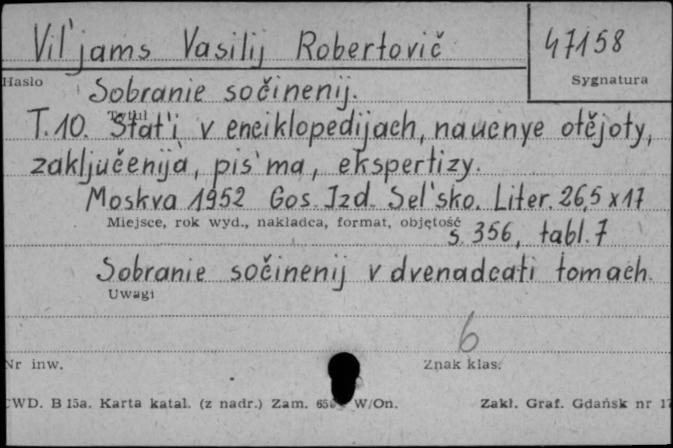 Vil'jams Vasilij Robertovič
47158
Hasło
Sygnatura
Sobranie sočinenij.
Tytuł
T.10. Stat'i v enciklopedijach, naucnye otějoty,
zaključenija, pis'ma, ekspertizy.
Moskva 1952 Gos. Izd. Sel'sko. Liter. 26,5 x 17
Miejsce, rok wyd., nakładca, format, objętość
s. 356, tabl. 7
Sobranie sočinenij v dvenadcati tomach.
Uwagi
6
Nr inw.
Znak klas.
CWD. B 15a. Karta katal. (z nadr.) Zam. W/On.
Zakł. Graf. Gdańsk nr 17